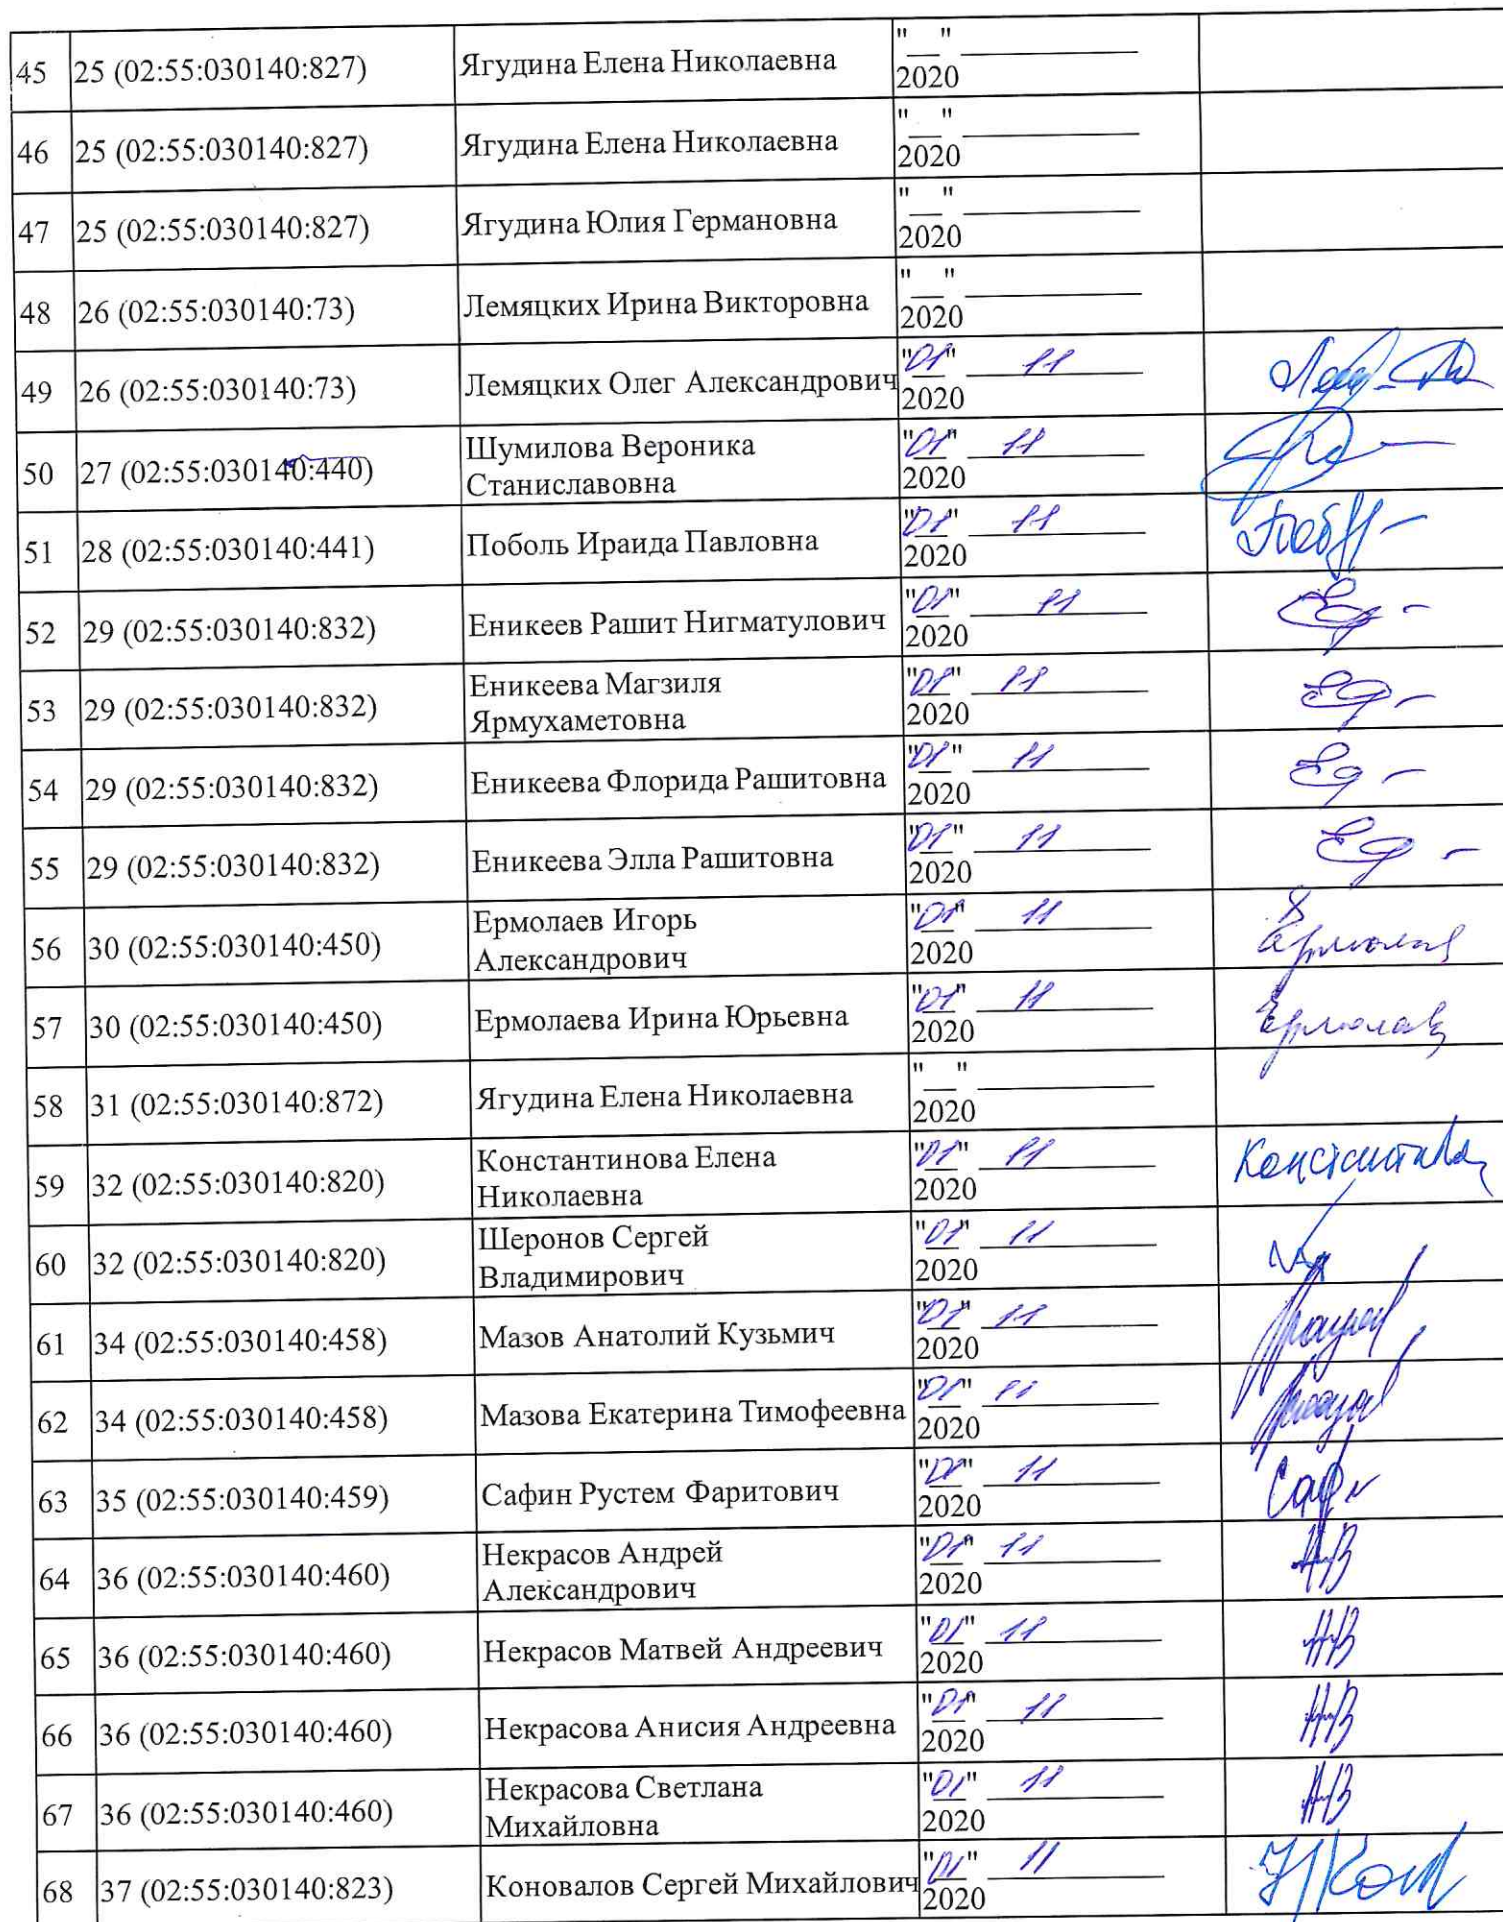 45 25 (02:55:030140:827) Ягудина Елена Николаевна "__" ________
2020
46 25 (02:55:030140:827) Ягудина Елена Николаевна "__" ________
2020
47 25 (02:55:030140:827) Ягудина Юлия Германовна "__" ________
2020
48 26 (02:55:030140:73) Лемяцких Ирина Викторовна "__" ________
2020
49 26 (02:55:030140:73) Лемяцких Олег Александрович "01" 11
2020
50 27 (02:55:030140:440) Шумилова Вероника "01" 11
Станиславовна 2020
51 28 (02:55:030140:441) Поболь Ираида Павловна "01" 11
2020
52 29 (02:55:030140:832) Еникеев Рашит Нигматулович "01" 11
2020
53 29 (02:55:030140:832) Еникеева Магзиля "01" 11
Ярмухаметовна 2020
54 29 (02:55:030140:832) Еникеева Флорида Рашитовна "01" 11
2020
55 29 (02:55:030140:832) Еникеева Элла Рашитовна "01" 11
2020
56 30 (02:55:030140:450) Ермолаев Игорь "01" 11
Александрович 2020
57 30 (02:55:030140:450) Ермолаева Ирина Юрьевна "01" 11
2020
58 31 (02:55:030140:872) Ягудина Елена Николаевна "__" ________
2020
59 32 (02:55:030140:820) Константинова Елена "01" 11
Николаевна 2020
60 32 (02:55:030140:820) Шеронов Сергей "01" 11
Владимирович 2020
61 34 (02:55:030140:458) Мазов Анатолий Кузьмич "01" 11
2020
62 34 (02:55:030140:458) Мазова Екатерина Тимофеевна "01" 11
2020
63 35 (02:55:030140:459) Сафин Рустем Фаритович "01" 11
2020
64 36 (02:55:030140:460) Некрасов Андрей "01" 11
Александрович 2020
65 36 (02:55:030140:460) Некрасов Матвей Андреевич "01" 11
2020
66 36 (02:55:030140:460) Некрасова Анисия Андреевна "01" 11
2020
67 36 (02:55:030140:460) Некрасова Светлана "01" 11
Михайловна 2020
68 37 (02:55:030140:823) Коновалов Сергей Михайлович "01" 11
2020